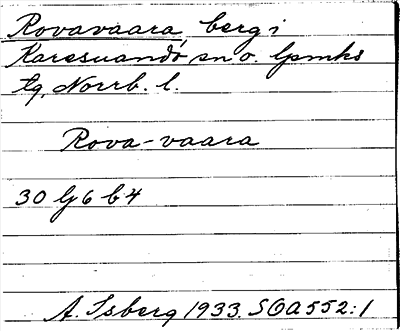 Rovavaara, berg i
Karesuando sn o. lpmks
tg, Norrb. l.
Rova-vaara
30 G 6 b 4
A. Isberg 1933. SOA 552:1